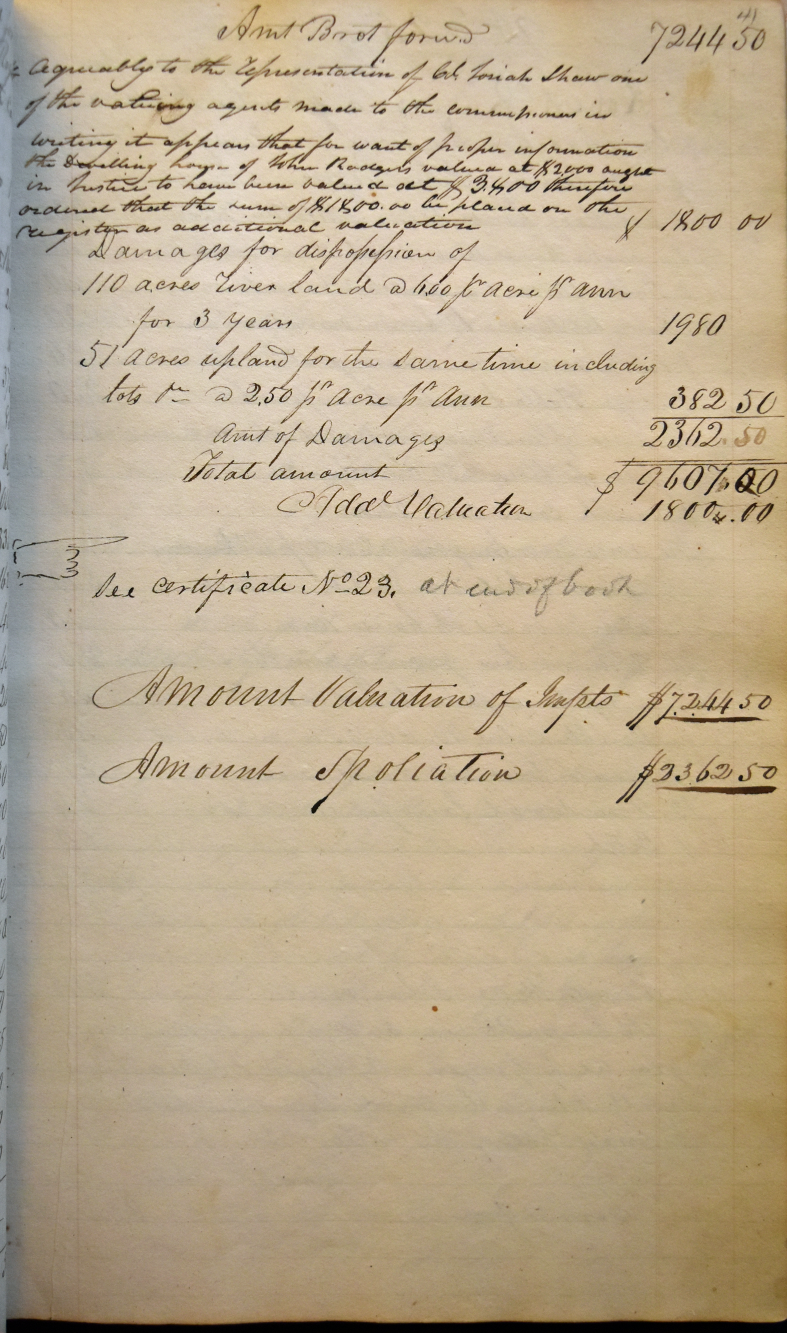 41
Amt Brot forwd 7244 50
Agreeably to the representation of Col. Josiah Shaw one
of the valuing agents made to the commissioners in
writing it appears that for want of proper information
the Dwelling house of John Rodgers valued at $2000 ought
in Justice to have been valued at $ 3.800 therefore
ordered that the sum of $1800.00 be placed on the
register as additional valuation $ 1800 00
Damages for dispossession of
110 acres river land @ 6.00 pr acre pr ann
for 3 years 1980
51 acres upland for the same time including
lots @ 2.50 pr Acre pr Ann 382 50
Amt of Damages 2362.50
Total amount $ 9607.00
Addl Valuation 1800.00
See certificate No 23. at end of book
Amount Valuation of Impts $7.244 50
Amount Spoliation $2362 50